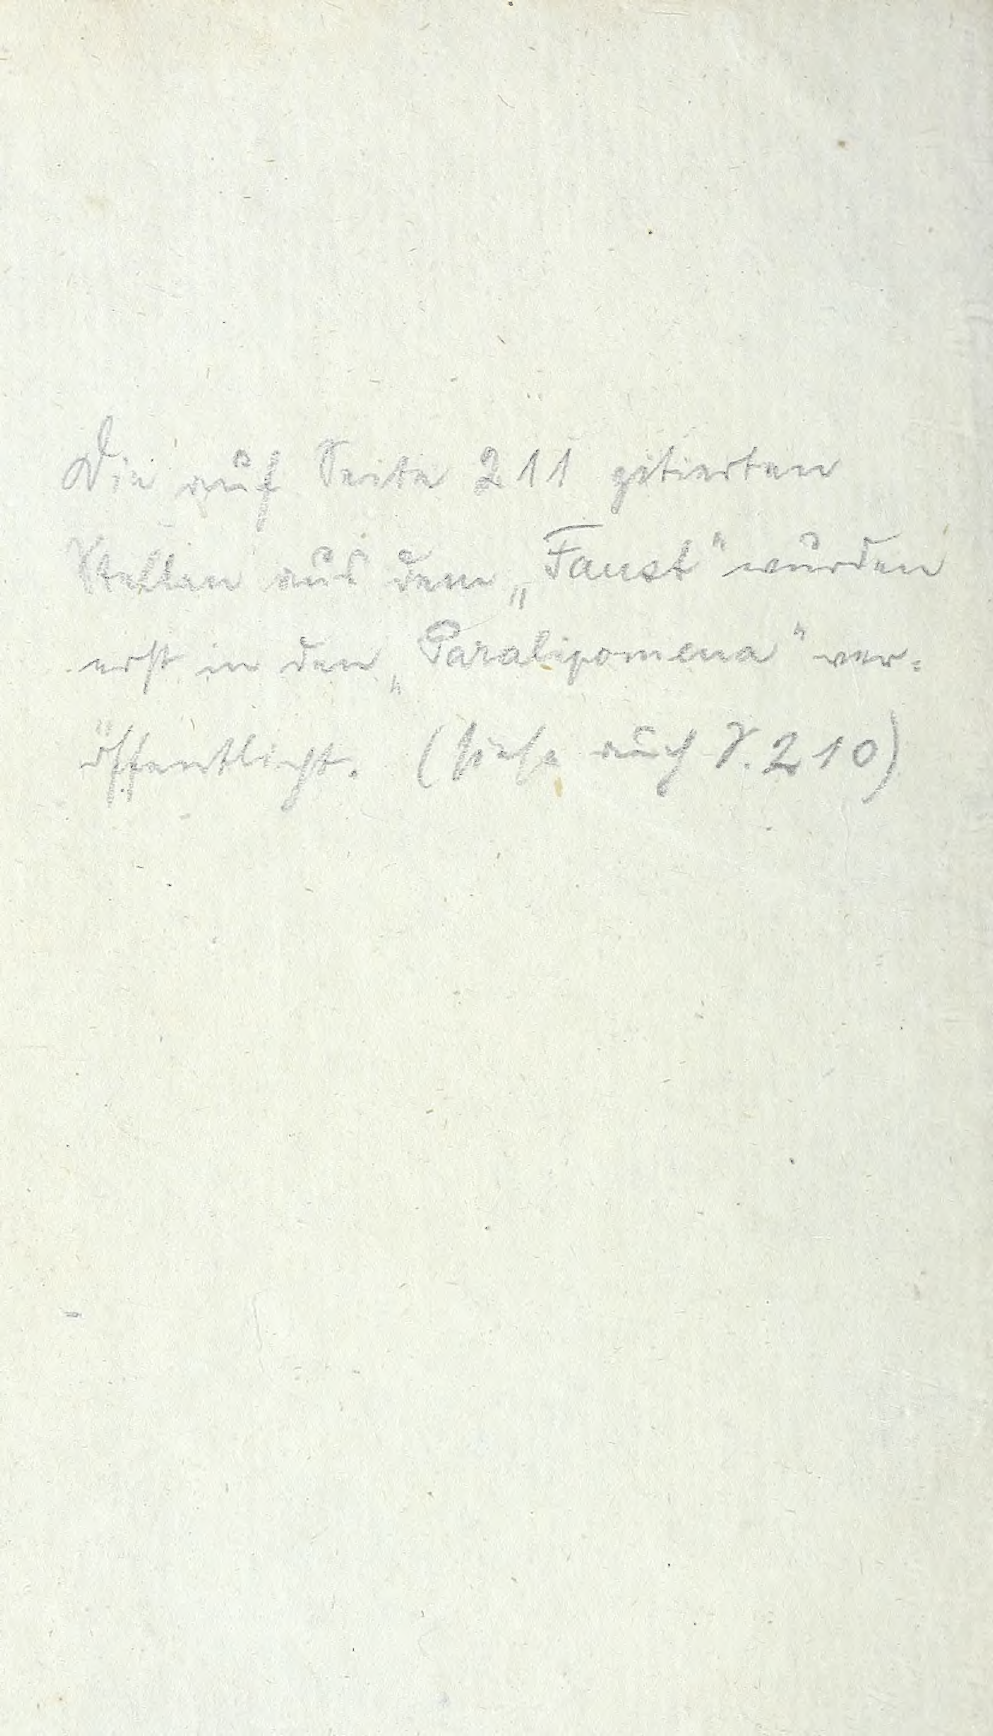 Die auf Seite 211 zitierten
Stellen aus dem „Faust" wurden
erst in den „Paralipomena" ver-
öffentlicht. (siehe auch S. 210)